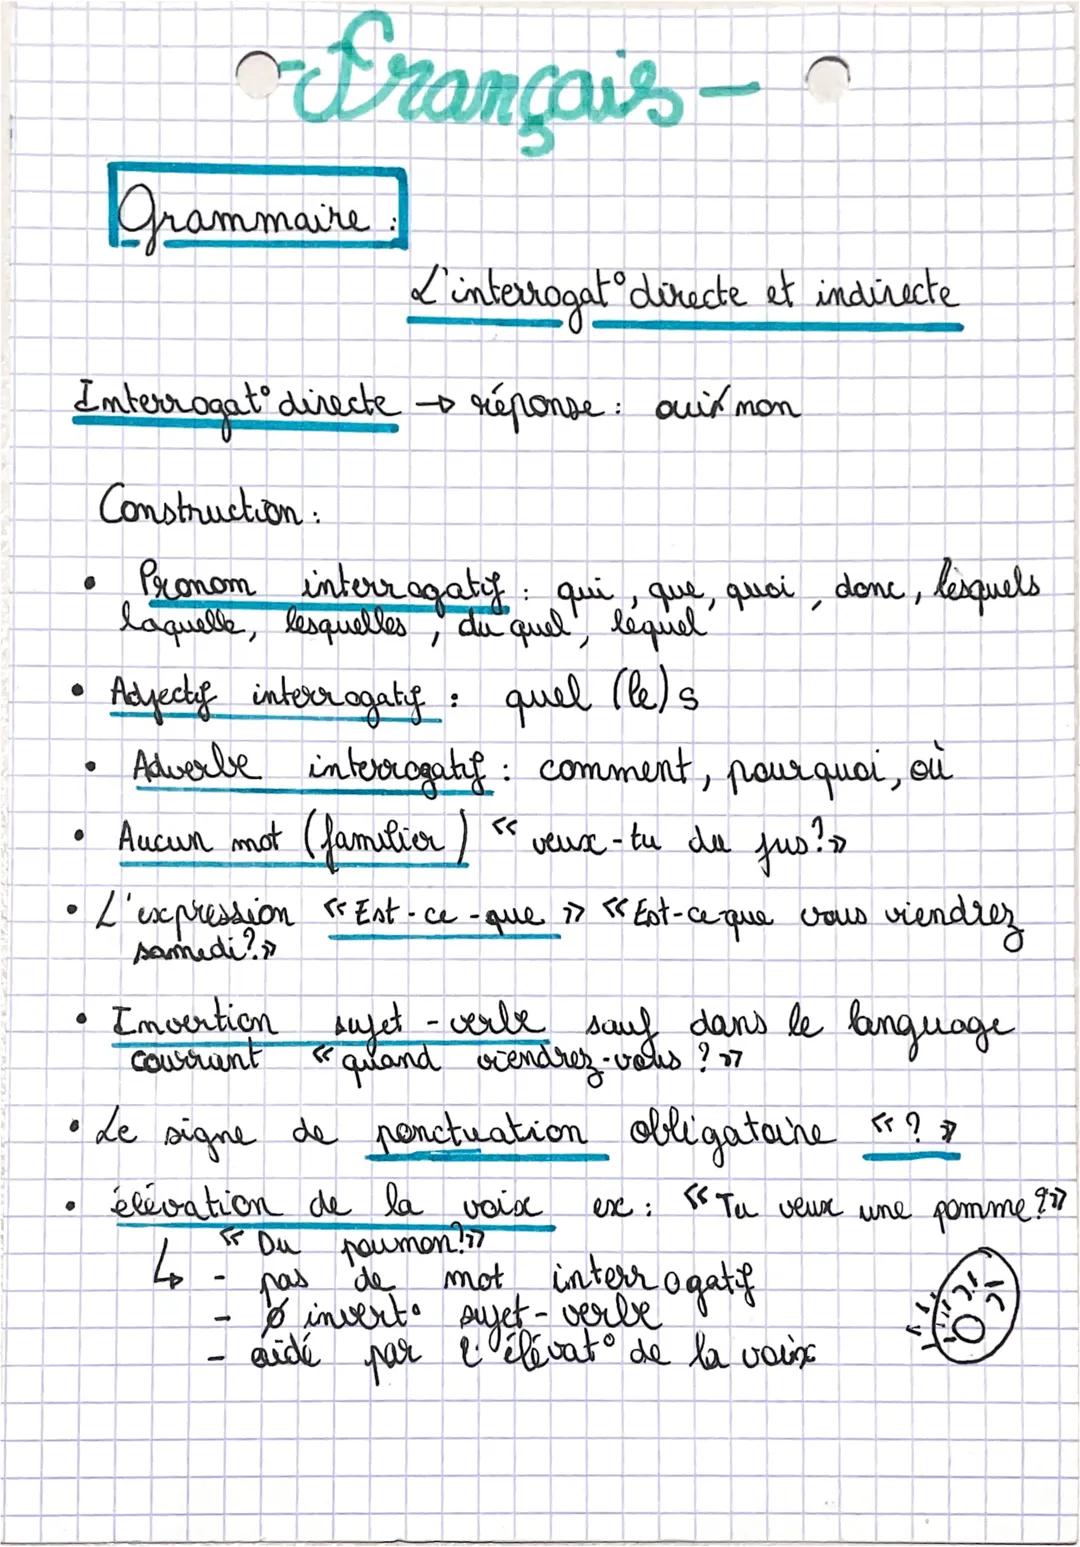 -Français-
Grammaire :
L'interrogat° directe et indirecte
Interrogat° directe → réponse : oui/non
Construction :
• Pronom interrogatif : qui, que, quoi, donc, lesquels
laquelle, lesquelles, du quel, lequel
• Adjectif interrogatif : quel (le) s
• Adverbe interrogatif : comment, pourquoi, où
• Aucun mot (familier) « veux-tu du jus? »
• L'expression « Est-ce-que » « Est-ce-que vous viendrez
samedi? »
• Invertion sujet-verbe sauf dans le language
courrant « quand viendrez-vous ? »
• Le signe de ponctuation obligatoire « ? »
• élévation de la voix ex : « Tu veux une pomme ? »
« Du poumon? »
↳ - pas de mot interrogatif
- Ø invert° sujet-verbe
- aidé par l'élévat° de la voix